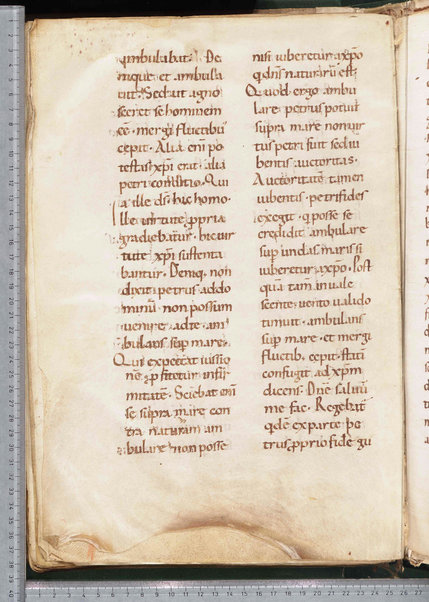 ambulabat. De
nique et ambula
uit. Sed ut agno
sceret se hominem
ee. mergi fluctibus
cepit. Alia eni po
testas xpi erat. alia
petri conditio. Qui
a ille ds. hic homo.
Ille uirtute ppria
gradiebatur. hic uir
tute xpi sustenta
bantur. Deniq. non
dixit petrus ad do
minu. non possum
uenire ad te. am
bulans sup mare.
Qui expectat iussio
ne. pfitetur infir
mitate. Sciebat eni
se supra mare con
tra naturam am
bulare non posse
nisi iuberetur a xpo
q dns naturaru est.
Quod ergo ambu
lare petrus potuit
supra mare non uir
tus petri fuit sed iu
bentis auctoritas.
Auctoritate tamen
iubentis petri fides
exegit. q posse se
credidit ambulare
sup undas maris si
iuberetur a xpo. Post
qua tam inuale
scente uento ualido
timuit. ambulans
sup mare. et mergi
fluctib. cepit. stati
confugit ad xpm
dicens. Dne saluu
me fac. Regebat
qde ex parte pe
trus pprio fide gu